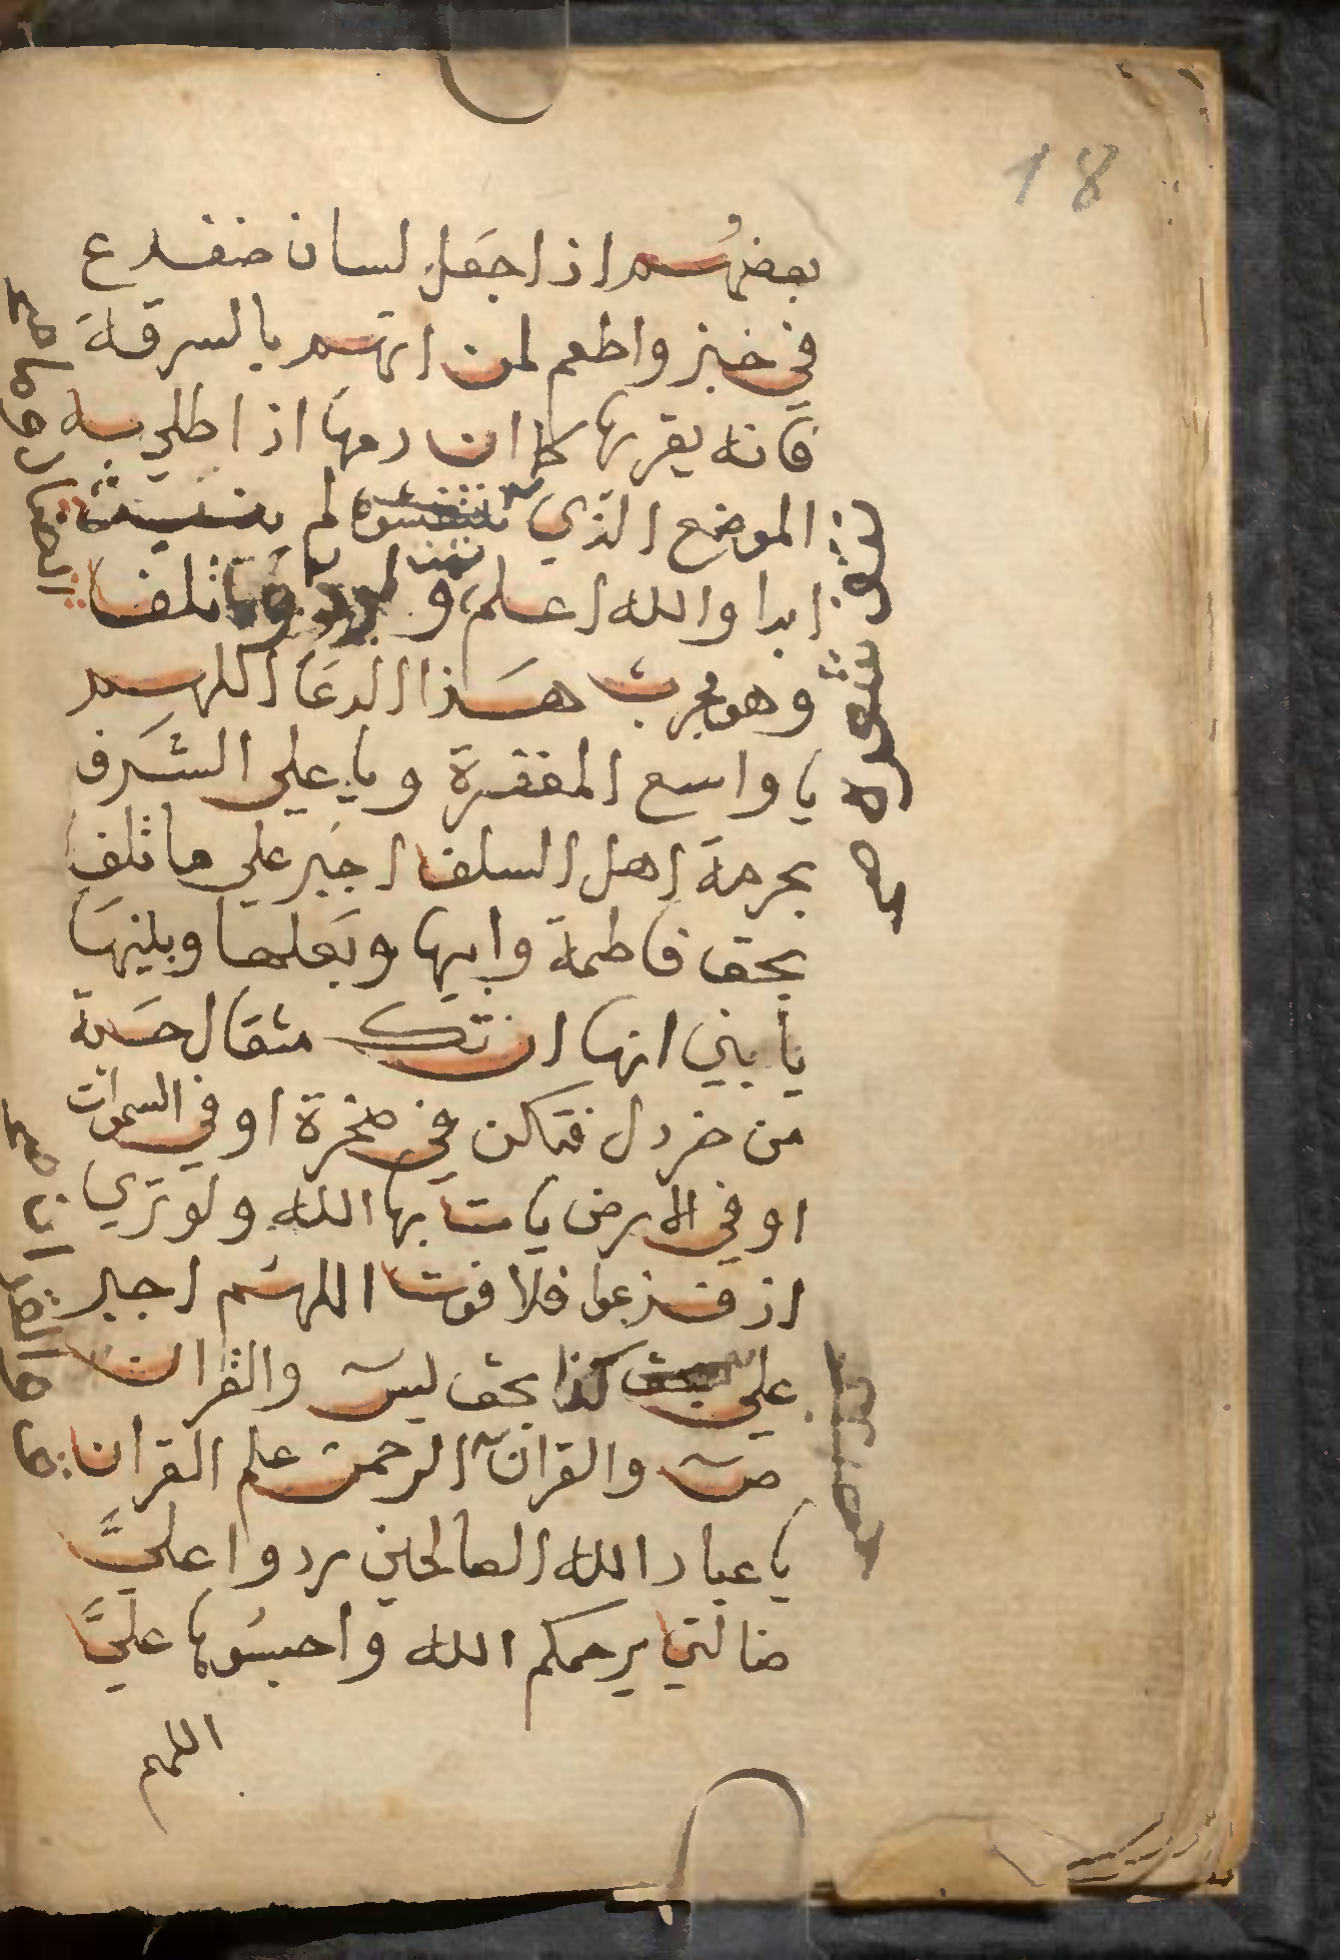 18
بعضهُم اذا جَعَل لسان ضفدع
في خبز واطعم لمن اتهم بالسرقة
فانه يقر بها كما ان دمها اذا اطلي به
الموضع الذي لم ينبت
ابدا والله اعلم و تلف
وهو مجرب هَذا الدعَا اللهم
يا واسع المغفرة ويا علي الشَرف
بحرمة اهل السلف اجبر علي ما تلف
بحق فاطمة وابيها وبَعلها وبنيهَا
يا بني انها ان تك مثقال حَبة
من خردل فتكن في صخرة او في السموات
او في الارض يات بها الله ولو تَرَي
اذ فزعوا فلا فوت اللهم اجبر
علي كذا بحق يس والقران
ص والقران الرحمن علم القران
يا عباد الله الصالحين ردوا عليَّ
ضالتي يرحمكم الله واحبسُوها عليَّ
اللهم